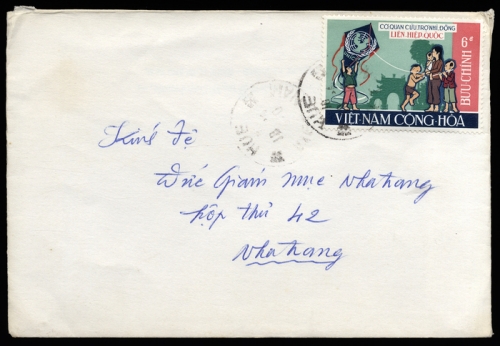 CƠ QUAN CỨU TRỢ NHI ĐỒNG
LIÊN HIỆP QUỐC
6đ
BƯU CHÍNH
VIỆT-NAM CỘNG-HÒA
HUE
HUE
Kính Đệ
Đức Giám Mục Nhatrang
hộp thư 42
Nhatrang